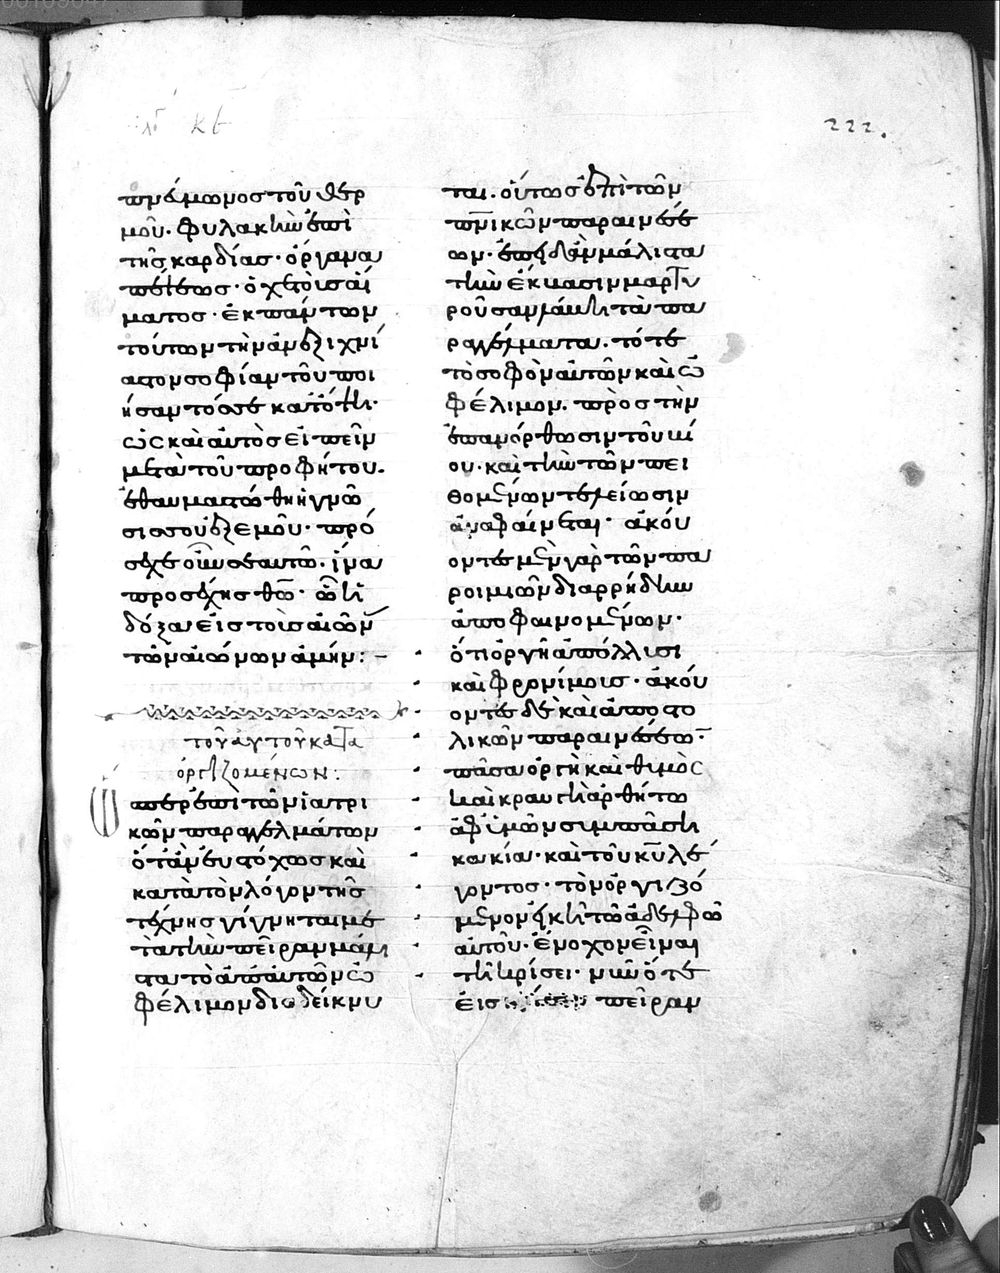 222.
πνεύμονος τοῦ θερ
μοῦ. φυλακὴν ἐπὶ
τῆς καρδίας· ὄργανα
πέψεως· ὀχετοὶς αἵ
ματος· ἐκ πάντων
τούτων τὴν ἀνεξιχνί
αστον σοφίαν τοῦ ποι
ήσαντός σε κατόψει·
ὡς καὶ αὐτὸς εἰπεῖν
μετὰ τοῦ προφήτου·
ἐθαυμαστώθη ἡ γνῶ
σις σου ἐξ ἐμοῦ· πρό
σεχε οὖν σεαυτῶ· ἵνα
προσέχης θῶ· ὧ ἡ
δόξα εἰς τοὺς αἰῶν
τῶν αἰώνων ἀμήν:-
τοῦ αὐτοῦ κατὰ
ὀργιζομένων:
ὥσπερ ἐπὶ τῶν ἰατρι
κῶν παραγγελμάτων
ὅταν εὐστόχως καὶ
κατὰ τὸν λόγον τῆς
τέχνης γίγνηται με
τὰ τὴν πεῖραν μάλι
στα τὸ ἀπ' αὐτῶν ὠ
φέλιμον διαδείκνυ
ται. οὕτως ἐπὶ τῶν
πνικῶν παραινέσε
ων· ἐπειδὰν μάλιστα
τὴν ἔκβασιν μαρτυ
ροῦσαν λάβη τὰ πα
ραγγέλματα. τότε
τὸ σοφὸν αὐτῶν καὶ ὠ
φέλιμον. πρὸς τὴν
ἐπανόρθωσιν τοῦ βί
ου· καὶ τὴν τῶν πει
θομένων τελείωσιν
ἀναφαίνεται· ἀκού
οντες μὲν γὰρ τῶν πα
ροιμιῶν διαρρήδην
ἀποφαινομένων·
ὅτι ὀργὴ ἀπόλλυσι
καὶ φρονίμους· ἀκού
οντες δὲ καὶ ἀποστο
λικῶν παραινέσεων·
πᾶσα ὀργὴ καὶ θυμὸς
καὶ κραυγὴ ἀρθήτω
ἀφ' ὑμῶν σὺν πάση
κακία· καὶ τοῦ κυ λέ
γοντος· τὸν ὀργιζό
μενον εἰκῆ τῶ ἀδελφῶ
αὐτοῦ· ἔνοχον εἶναι
τῆ κρίσει· νῦν ὅτε
εἰς πεῖραν